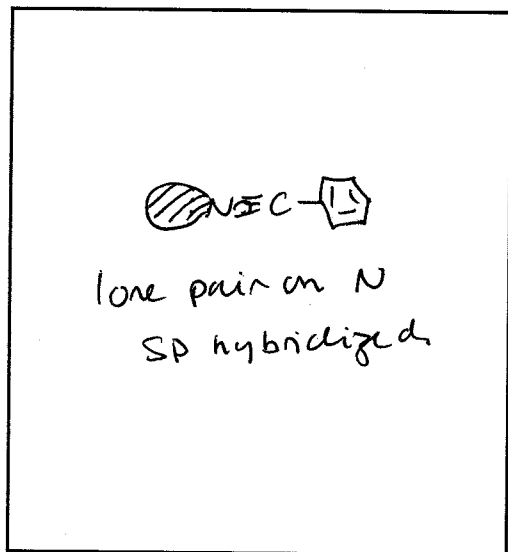 N≡C
lone pair on N
sp hybridized